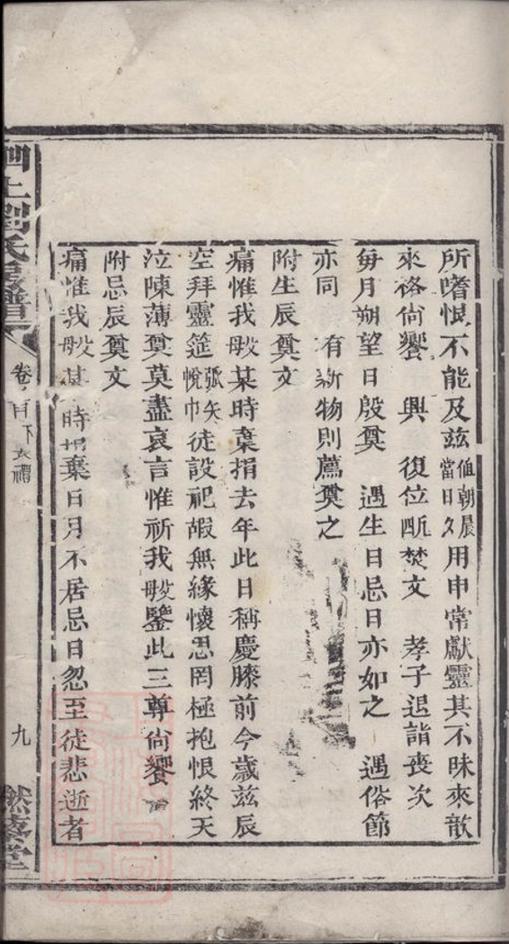 所嗜恨不能及茲值朝晨當日夕用申常獻靈其不昧來歆
來格尙饗 興 復位 焚文 孝子退詣喪次
每月朔望日殷奠 遇生日忌日亦如之 遇俗節
亦同 有新物則薦奠之
附生辰奠文
痛惟我 某時棄捐去年此日稱慶膝前今歲茲辰
空拜靈筵弧矢帨巾徒設祀嘏無緣懷思罔極抱恨終天
泣陳薄奠莫盡哀言惟祈我 鑒此三尊尙饗
附忌辰奠文
痛惟我 某時捐棄日月不居忌日忽至徒悲逝者
上劉氏 譜
卷首下 喪禮
九